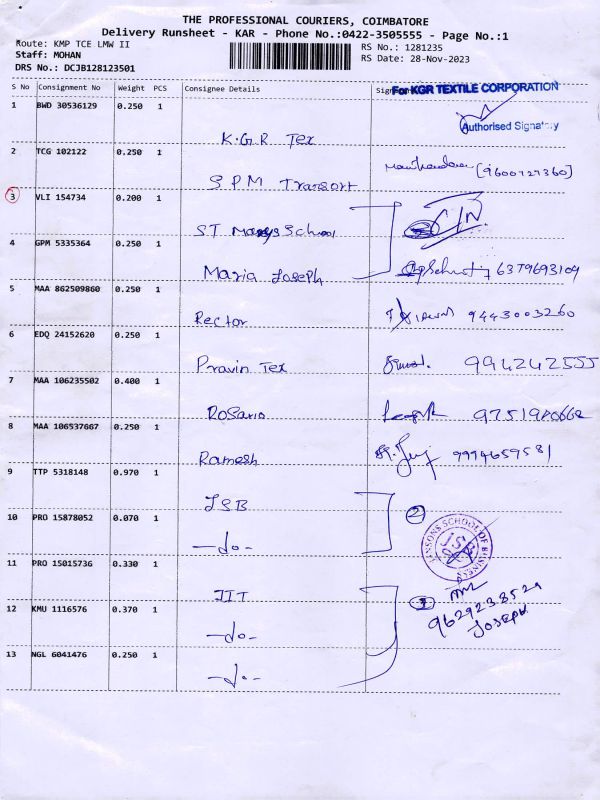 THE PROFESSIONAL COURIERS, COIMBATORE
Delivery Runsheet - KAR - Phone No.:0422-3505555 - Page No.:1
Route: KMP TCE LMW II
Staff: MOHAN
DRS No.: DCJB128123501
RS No.: 1281235
RS Date: 28-Nov-2023
S No Consignment No Weight PCS Consignee Details
For KGR TEXTILE CORPORATION
1 BWD 30536129 0.250 1
Authorised Signatory
K.G.R Tex
2 TCG 102122 0.250 1
[9600727360]
SPM Transort
3 VLI 154734 0.200 1
ST Marys School
4 GPM 5335364 0.250 1
Maria Joseph 6379693109
5 MAA 862509860 0.250 1
Rector 9443003260
6 EDQ 24152620 0.250 1
Pravin Tex 994242555
7 MAA 106235502 0.400 1
Rosario
8 MAA 106537667 0.250 1
Ramesh 9994659581
9 TTP 5318148 0.970 1
JSB
2
10 PRO 15878052 0.070 1
-do-
JANSONS SCHOOL OF BUSINESS
11 PRO 15015736 0.330 1
JIT
3
9629238529
JOSEPH
12 KMU 1116576 0.370 1
-do-
13 NGL 6041476 0.250 1
-do-